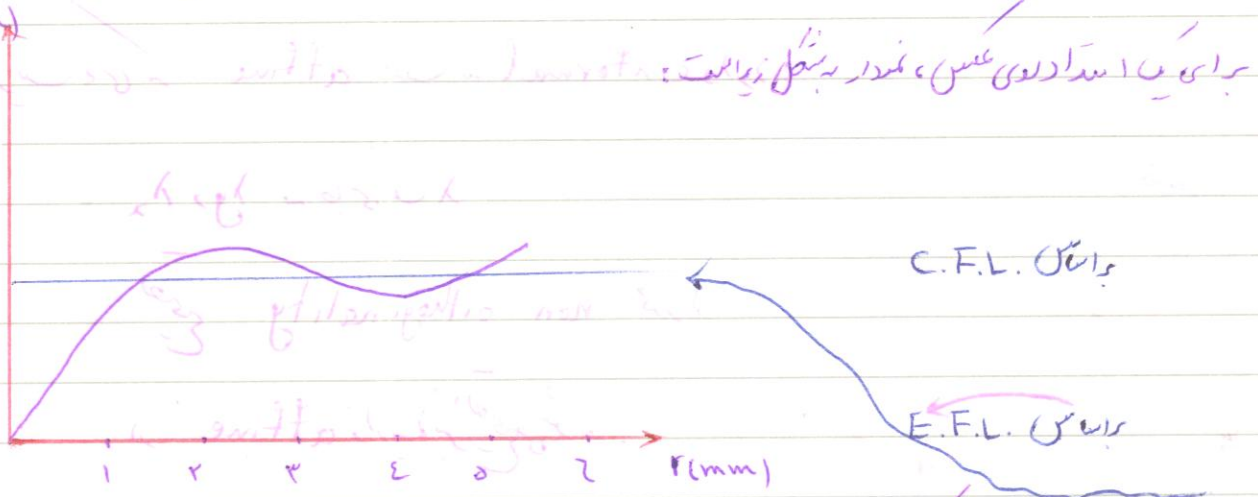 برای یک امتداد روی عکس، نمودار به شکل زیر است:
براساس C.F.L.
براساس E.F.L.
١ ٢ ٣ ٤ ٥ ٦ r(mm)